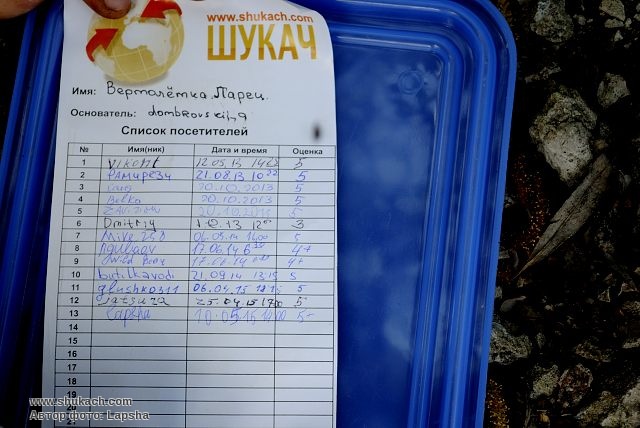 www.shukach.com
ШУКАЧ
Имя: Верталётка. Парец.
Основатель: dombrovskij,a
Список посетителей
№ Имя(ник) Дата и время Оценка
1 Vikont 12.05.13 5
2 Рамирези 21.08.13 10 22 5
3 20.10.2013 5
4 Belka 20.10.2013 5
5 20.10.2013 5
6 Dmitrij 3
7 Mike 258 06.05.14 5
8 17.06.14 4+
9 Wild 4+
10 butilkavodi 21.09.14 13:15 5
11 glushko311 06.04.15 5
12 25.04.15 1700 5
13 Lapsha 10.05.15 5-
14
15
16
17
18
19
20
21
www.shukach.com
Автор фото: Lapsha